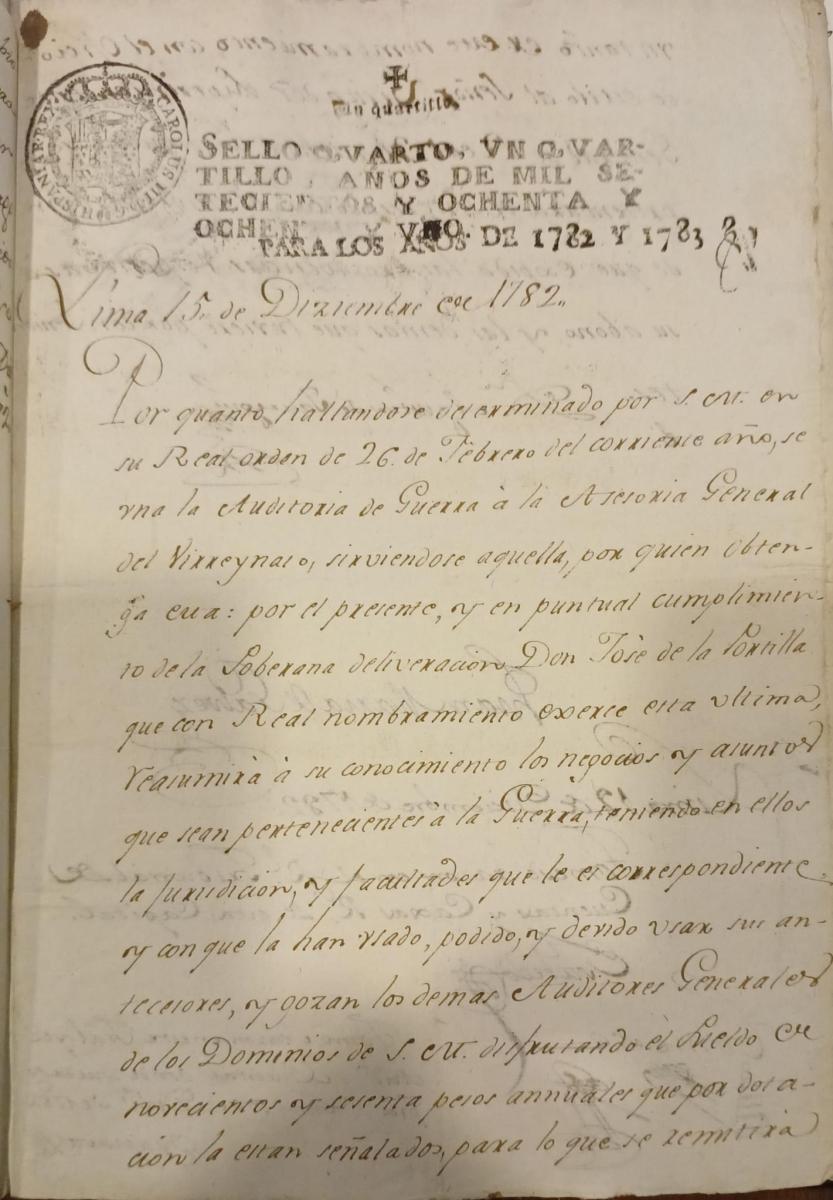 CAROLUS III D G HISPANIAR REX
Un quartillo
SELLO QVARTO, VN QVAR-
TILLO, AÑOS DE MIL SE-
TECIENTOS Y OCHENTA Y
OCHENTA Y VNO.
PARA LOS AÑOS DE 1782 Y 1783
Lima 15, de Diziembre de 1782,,
Por quanto, hallandose determinado por S. M. en
su Real orden de 26. de Febrero del corriente año, se
vna la Auditoria de Guerra à la Asesoria General
del Virreynato, sirviendose aquella, por quien obten-
ga esta: por el presente, y en puntual cumplimien-
to de la Soberana deliveracion Don Josè de la Portilla
que con Real nombramiento exerce esta vltima,
reasumirà à su conocimiento los negocios y asuntos
que sean pertenecientes à la Guerra, teniendo en ellos
la jurisdicion, y facultades que le es correspondiente
y con que la han vsado, podido, y devido vsar sus an-
tecesores, y gozan los demas Auditores Generales
de los Dominios de S. M. disfrutando èl Sueldo de
novecientos y sesenta pesos annuales que por dota-
cion la estan señalados, para lo que se remitirà